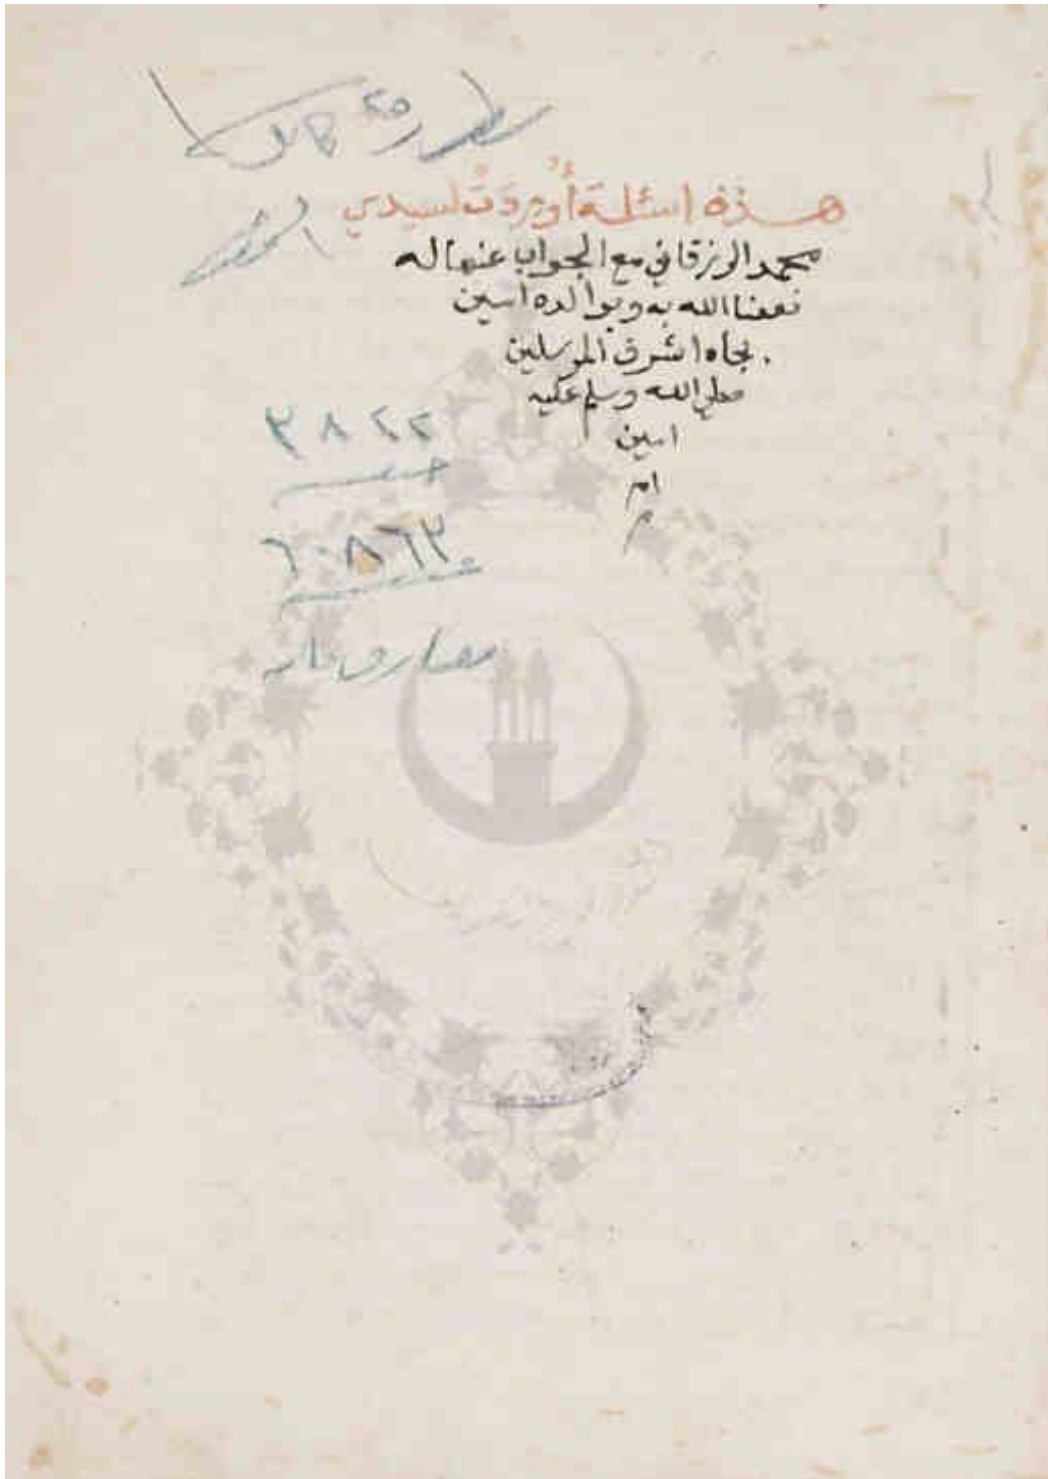 هذه اسئلة أوردت لسيدي
محمد الزرقاني مع الجواب عنها له
نفعنا الله به وبوالده امين
بجاه اشرف المرسلين
صلي الله وسلم عليه
امين
ام
٣٨٢٢
٦٠٨٦٣
مصارف عامه